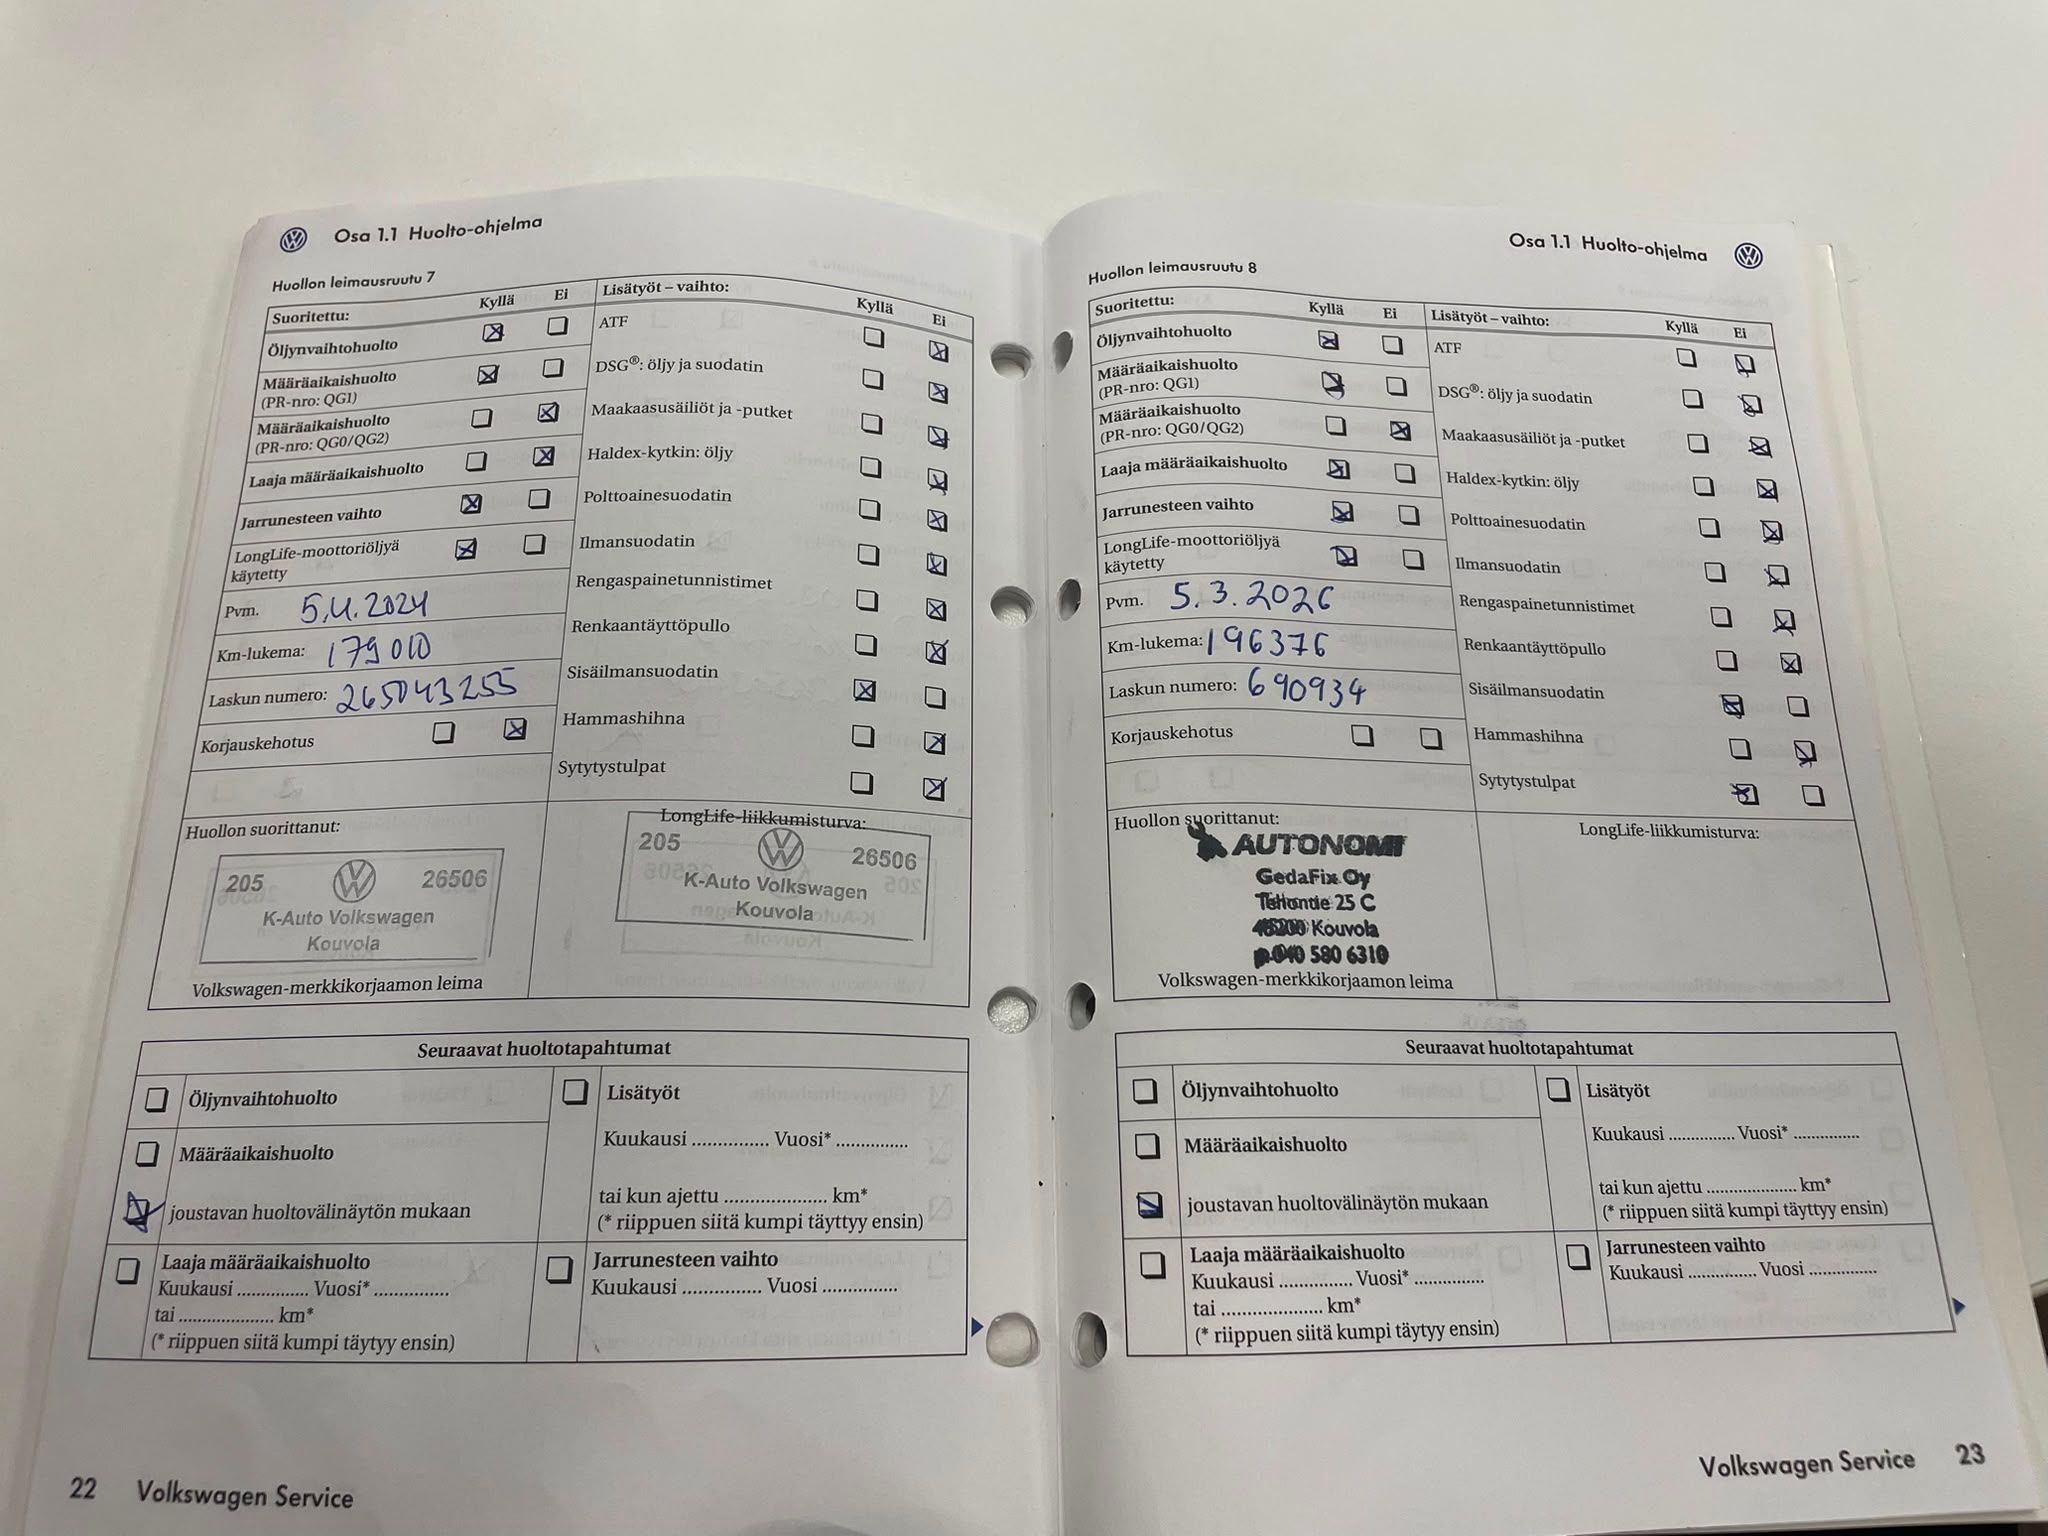 Osa 1.1 Huolto-ohjelma
Huollon leimausruutu 7
Suoritettu: Kyllä Ei
Öljynvaihtohuolto
Määräaikaishuolto
(PR-nro: QG1)
Määräaikaishuolto
(PR-nro: QG0/QG2)
Laaja määräaikaishuolto
Jarrunesteen vaihto
LongLife-moottoriöljyä
käytetty
Pvm. 5.4.2024
Km-lukema: 179010
Laskun numero: 265043255
Korjauskehotus
Lisätyöt – vaihto: Kyllä Ei
ATF
DSG®: öljy ja suodatin
Maakaasusäiliöt ja -putket
Haldex-kytkin: öljy
Polttoainesuodatin
Ilmansuodatin
Rengaspainetunnistimet
Renkaantäyttöpullo
Sisäilmansuodatin
Hammashihna
Sytytystulpat
Huollon suorittanut:
205 26506
K-Auto Volkswagen
Kouvola
Volkswagen-merkkikorjaamon leima
LongLife-liikkumisturva:
205 26506
K-Auto Volkswagen
Kouvola
Seuraavat huoltotapahtumat
Öljynvaihtohuolto
Määräaikaishuolto
joustavan huoltovälinäytön mukaan
Laaja määräaikaishuolto
Kuukausi ............... Vuosi* ...............
tai ..................... km*
(* riippuen siitä kumpi täytyy ensin)
Lisätyöt
Kuukausi ............... Vuosi* ...............
tai kun ajettu ..................... km*
(* riippuen siitä kumpi täyttyy ensin)
Jarrunesteen vaihto
Kuukausi ............... Vuosi ...............
22 Volkswagen Service
Osa 1.1 Huolto-ohjelma
Huollon leimausruutu 8
Suoritettu: Kyllä Ei
Öljynvaihtohuolto
Määräaikaishuolto
(PR-nro: QG1)
Määräaikaishuolto
(PR-nro: QG0/QG2)
Laaja määräaikaishuolto
Jarrunesteen vaihto
LongLife-moottoriöljyä
käytetty
Pvm. 5.3.2026
Km-lukema: 196376
Laskun numero: 690934
Korjauskehotus
Lisätyöt – vaihto: Kyllä Ei
ATF
DSG®: öljy ja suodatin
Maakaasusäiliöt ja -putket
Haldex-kytkin: öljy
Polttoainesuodatin
Ilmansuodatin
Rengaspainetunnistimet
Renkaantäyttöpullo
Sisäilmansuodatin
Hammashihna
Sytytystulpat
Huollon suorittanut:
AUTONOMI
GedaFix Oy
Tehontie 25 C
45200 Kouvola
p.040 580 6310
Volkswagen-merkkikorjaamon leima
LongLife-liikkumisturva:
Seuraavat huoltotapahtumat
Öljynvaihtohuolto
Määräaikaishuolto
joustavan huoltovälinäytön mukaan
Laaja määräaikaishuolto
Kuukausi ............... Vuosi* ...............
tai ..................... km*
(* riippuen siitä kumpi täytyy ensin)
Lisätyöt
Kuukausi ............... Vuosi* ...............
tai kun ajettu ..................... km*
(* riippuen siitä kumpi täyttyy ensin)
Jarrunesteen vaihto
Kuukausi ............... Vuosi ...............
Volkswagen Service 23